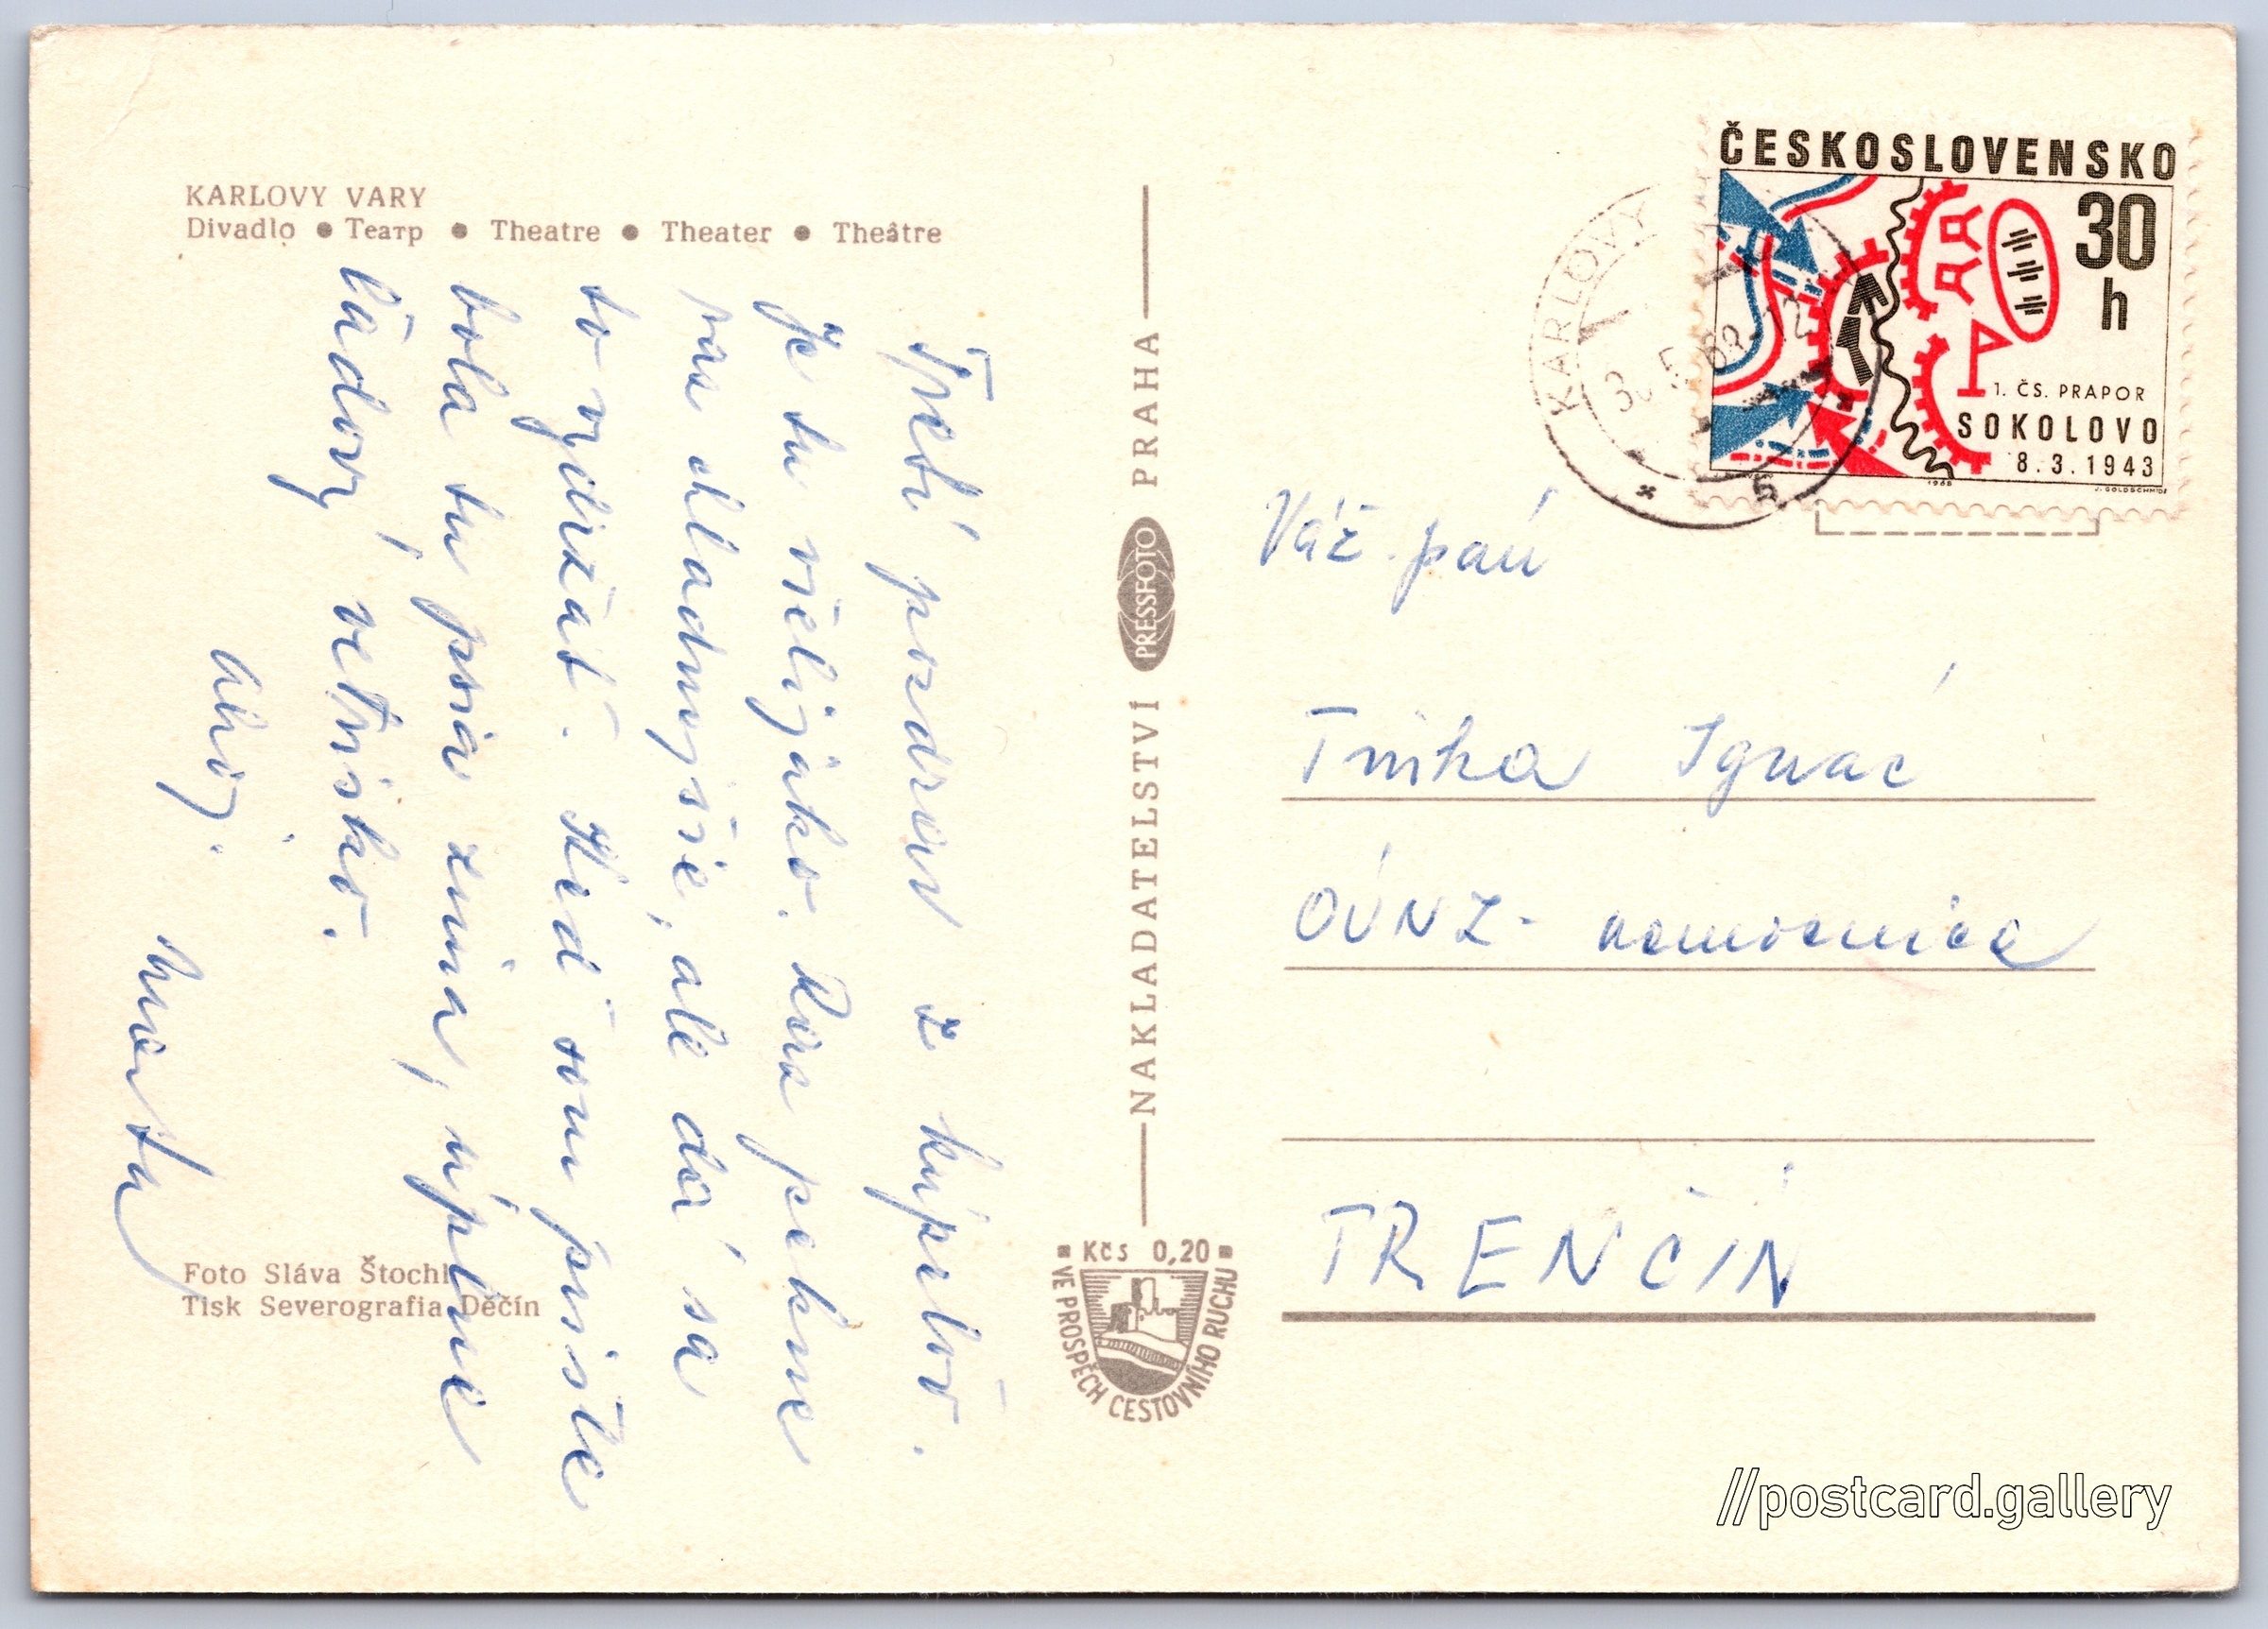 KARLOVY VARY
Divadlo ● Театр ● Theatre ● Theater ● Théâtre
Tretí pozdrav z kúpeľov.
Je tu všelijako. Ráno pekne
raz chladnejšie, ale dá sa
to vydržať. Keď som prišla
bola tu psia zima, úplne
ľadový vetrisko.
Ahoj.
Foto Sláva Štochl
Tisk Severografia Děčín
NAKLADATELSTVÍ PRESSFOTO PRAHA
Kčs 0,20
VE PROSPĚCH CESTOVNÍHO RUCHU
ČESKOSLOVENSKO
30
h
1. ČS. PRAPOR
SOKOLOVO
8.3.1943
1968
J. GOLDSCHMIED
KARLOVY
5
Váž. pán
Trnka Ignác
OÚNZ - nemocnica
TRENČÍN
//postcard.gallery